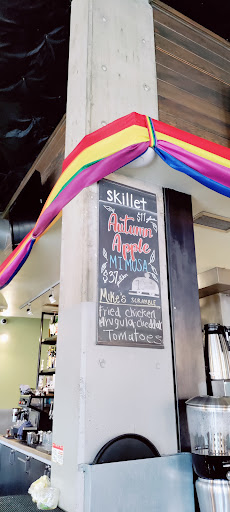 skillet
$11
Autumn
Apple
MIMOSA
Mike's SCRAMBLE
Fried chicken,
Arugula, cheddar,
Tomatoes